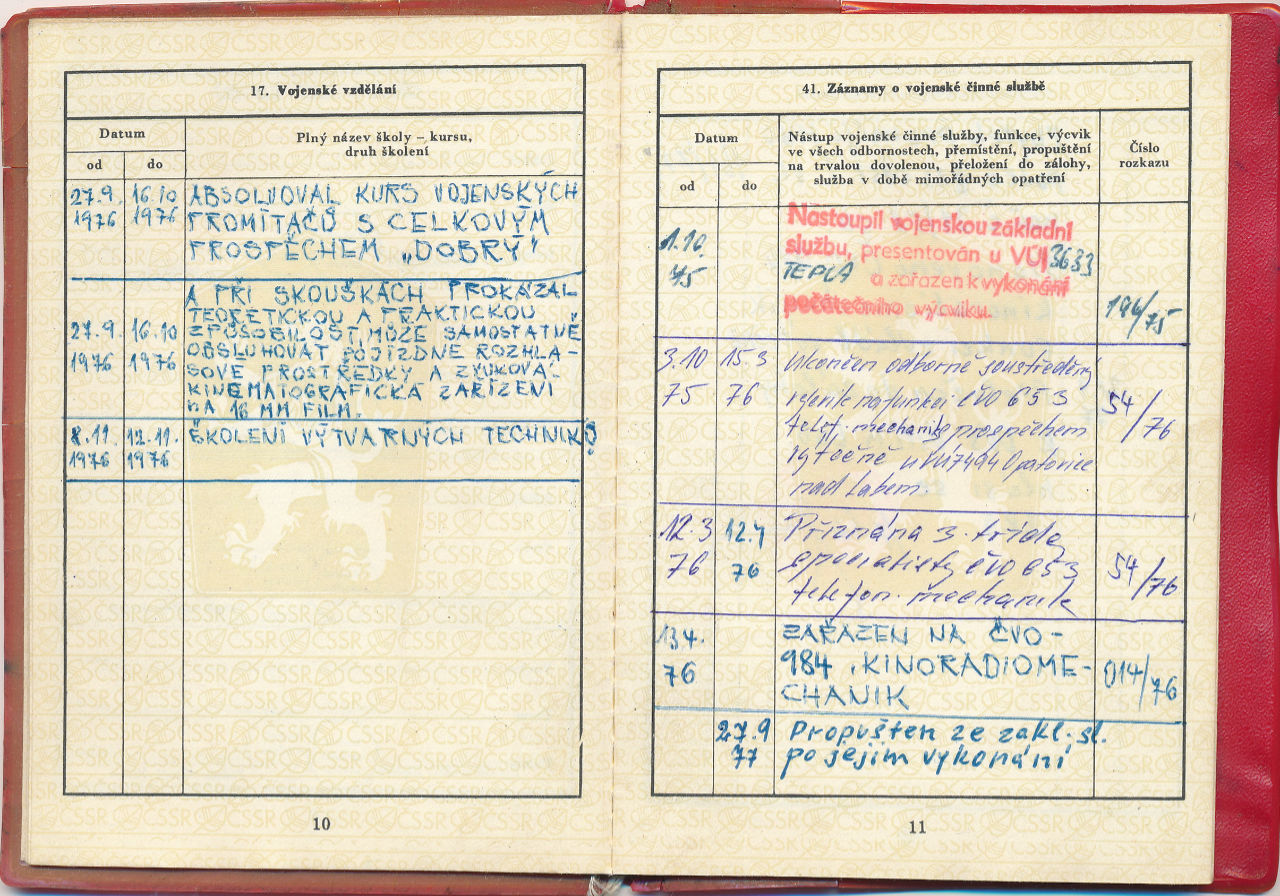 17. Vojenské vzdělání
Datum
od
do
Plný název školy – kursu,
druh školení
27.9. 16.10 ABSOLVOVAL KURS VOJENSKÝCH
1976 1976 PROMÍTAČŮ S CELKOVÝM
PROSPĚCHEM „DOBRÝ"
A PŘI SKOUŠKÁCH PROKÁZAL
TEORETICKOU A PRAKTICKOU
27.9. 16.10 ZPŮSOBILOST, MŮŽE SAMOSTATNĚ
OBSLUHOVAT POJÍZDNÉ ROZHLA-
1976 1976 SOVÉ PROSTŘEDKY A ZVUKOVÁ
KINEMATOGRAFICKÁ ZAŘÍZENÍ
NA 16 MM FILM.
8.11. 12.11. ŠKOLENÍ VÝTVARNÝCH TECHNIKŮ
1976 1976
10
41. Záznamy o vojenské činné službě
Datum
od
do
Nástup vojenské činné služby, funkce, výcvik
ve všech odbornostech, přemístění, propuštění
na trvalou dovolenou, přeložení do zálohy,
služba v době mimořádných opatření
Číslo
rozkazu
Nastoupil vojenskou základní
1.10. službu, presentován u VÚ 3633
75 TEPLÁ a zařazen k vykonání
počátečního výcviku. 194/75
3.10 15.3 Ukončen odborně soustředěný
75 76 výcvik na funkci ČVO 653 54/76
telef. mechanik s prospěchem
výtečně u VÚ 7494 Opatovice
nad Labem.
12.3 12.4 Přiznána 3. třída
76 76 specialisty ČVO 653 54/76
telefon. mechanik
13.4. ZAŘAZEN NA ČVO-
76 984 KINORADIOME- 014/76
CHANIK
27.9 Propuštěn ze zákl. sl.
77 po jejím vykonání
11